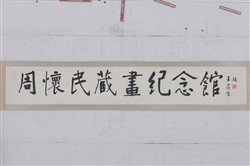 周懷民藏畫紀念館